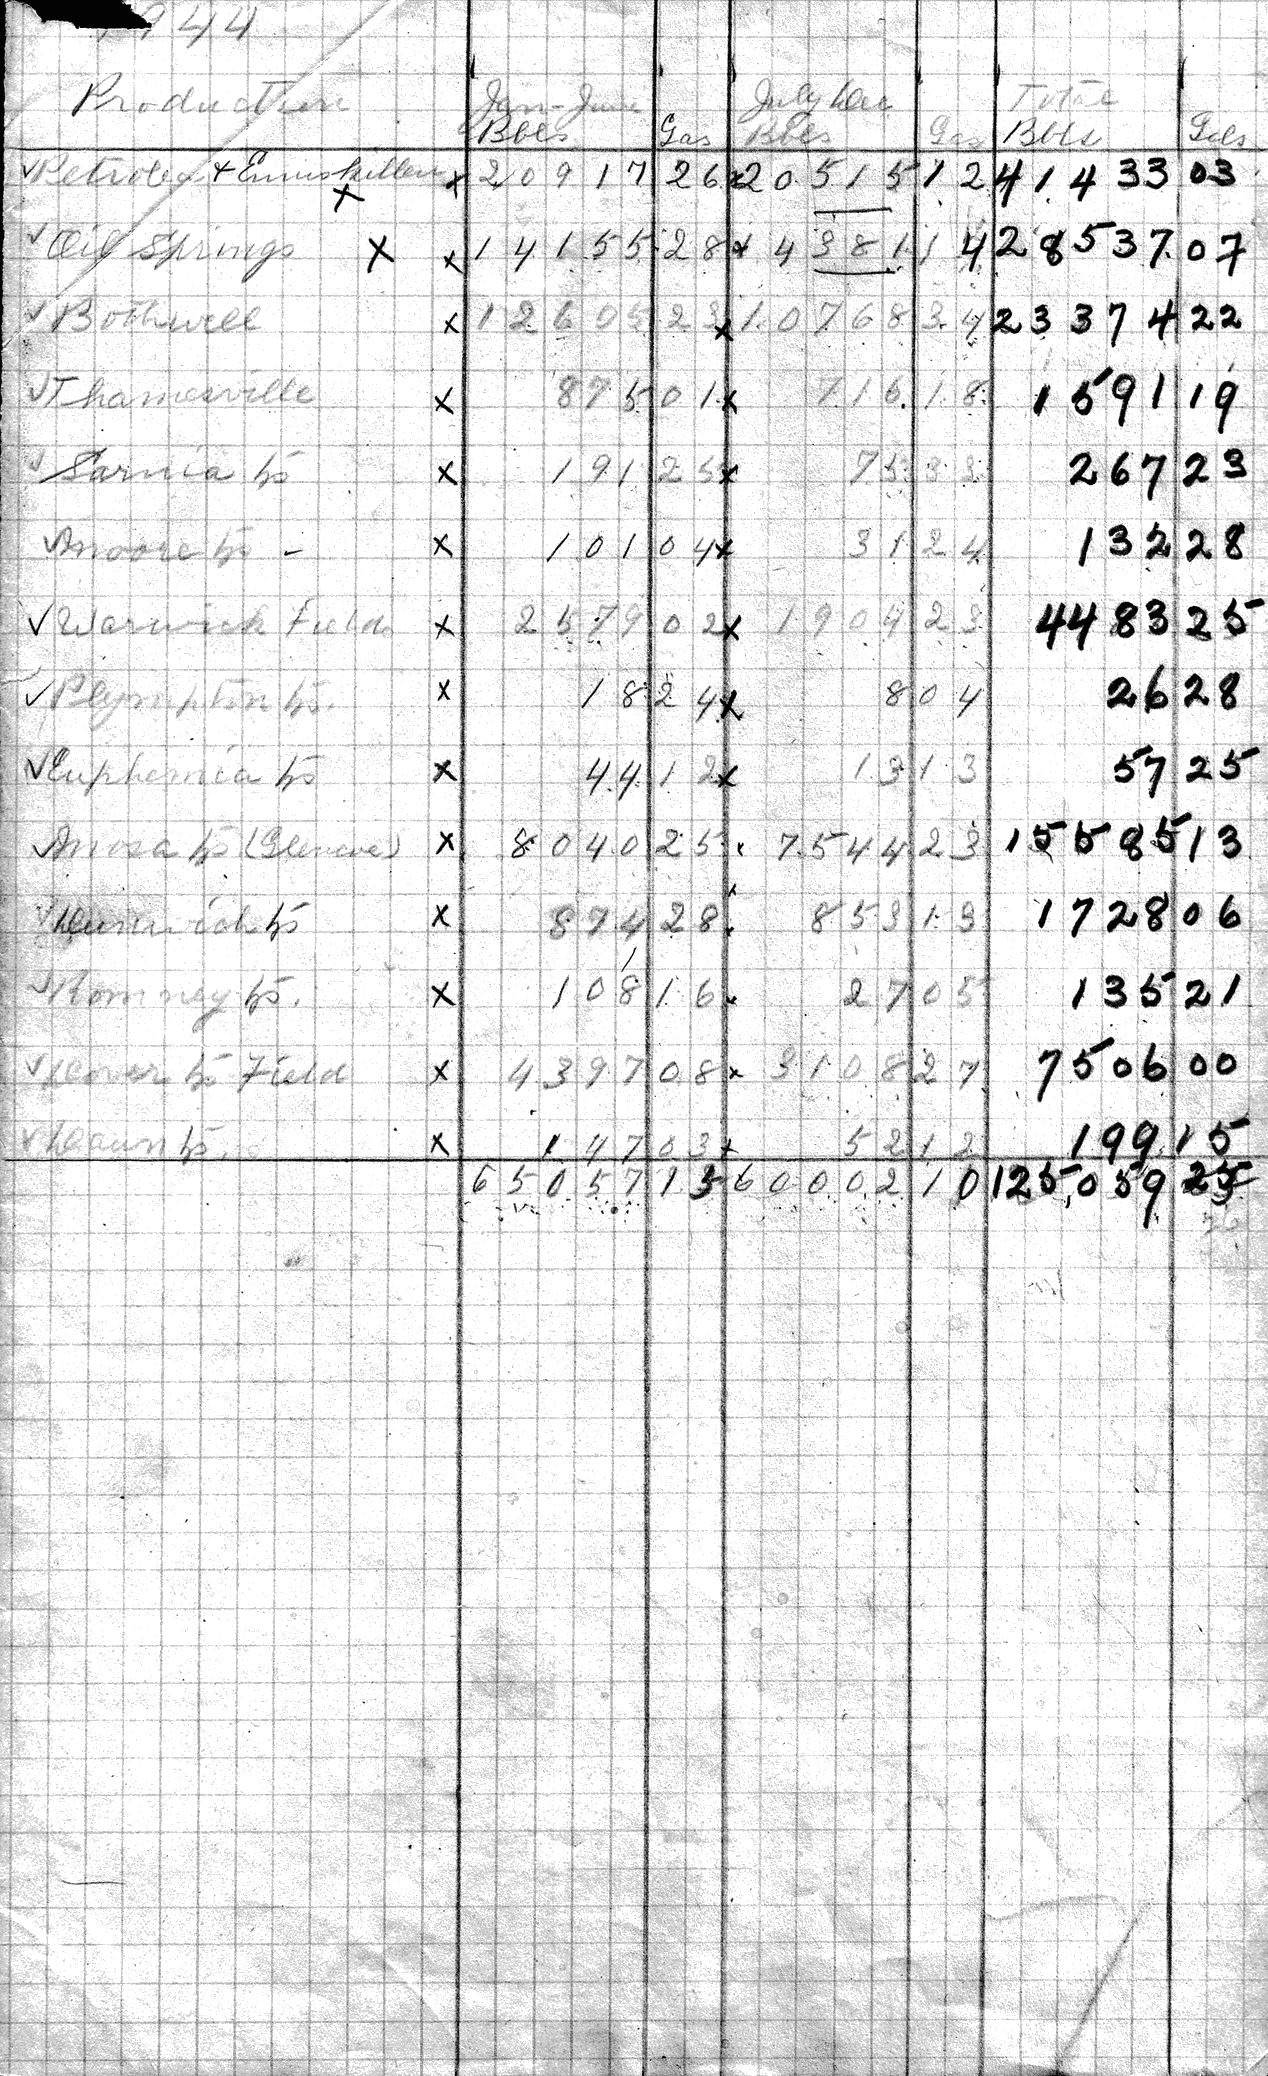 1944
Production Jan-June July Dec Total
Bbls Gas Bbls Gas Bbls Gals
✓ Petrolea + Enniskillen x x 20917 26 x 20515 12 41433 03
✓ Oil Springs x x 14155 28 x 14381 14 28537 07
✓ Bothwell x 12605 23 x 10768 34 23374 22
✓ Thamesville x 875 01 x 716 18 1591 19
✓ Sarnia tp x 191 25 x 75 33 267 23
✓ Moore tp - x 101 04 x 31 24 132 28
✓ Warwick Field x 2579 02 x 1904 23 4483 25
✓ Plympton tp. x 18 24 x 8 04 26 28
✓ Euphemia tp x 44 12 x 13 13 57 25
✓ Mosa tp (Glencoe) x 8040 25 x 7544 23 15585 13
✓ Dunwich tp x 874 28 853 13 1728 06
✓ Romney tp. x 108 16 x 27 05 135 21
✓ Dover tp Field x 4397 08 x 3108 27 7506 00
✓ Dawn tp. x 147 03 x 52 12 199 15
65057 15 60002 10 125,059 25